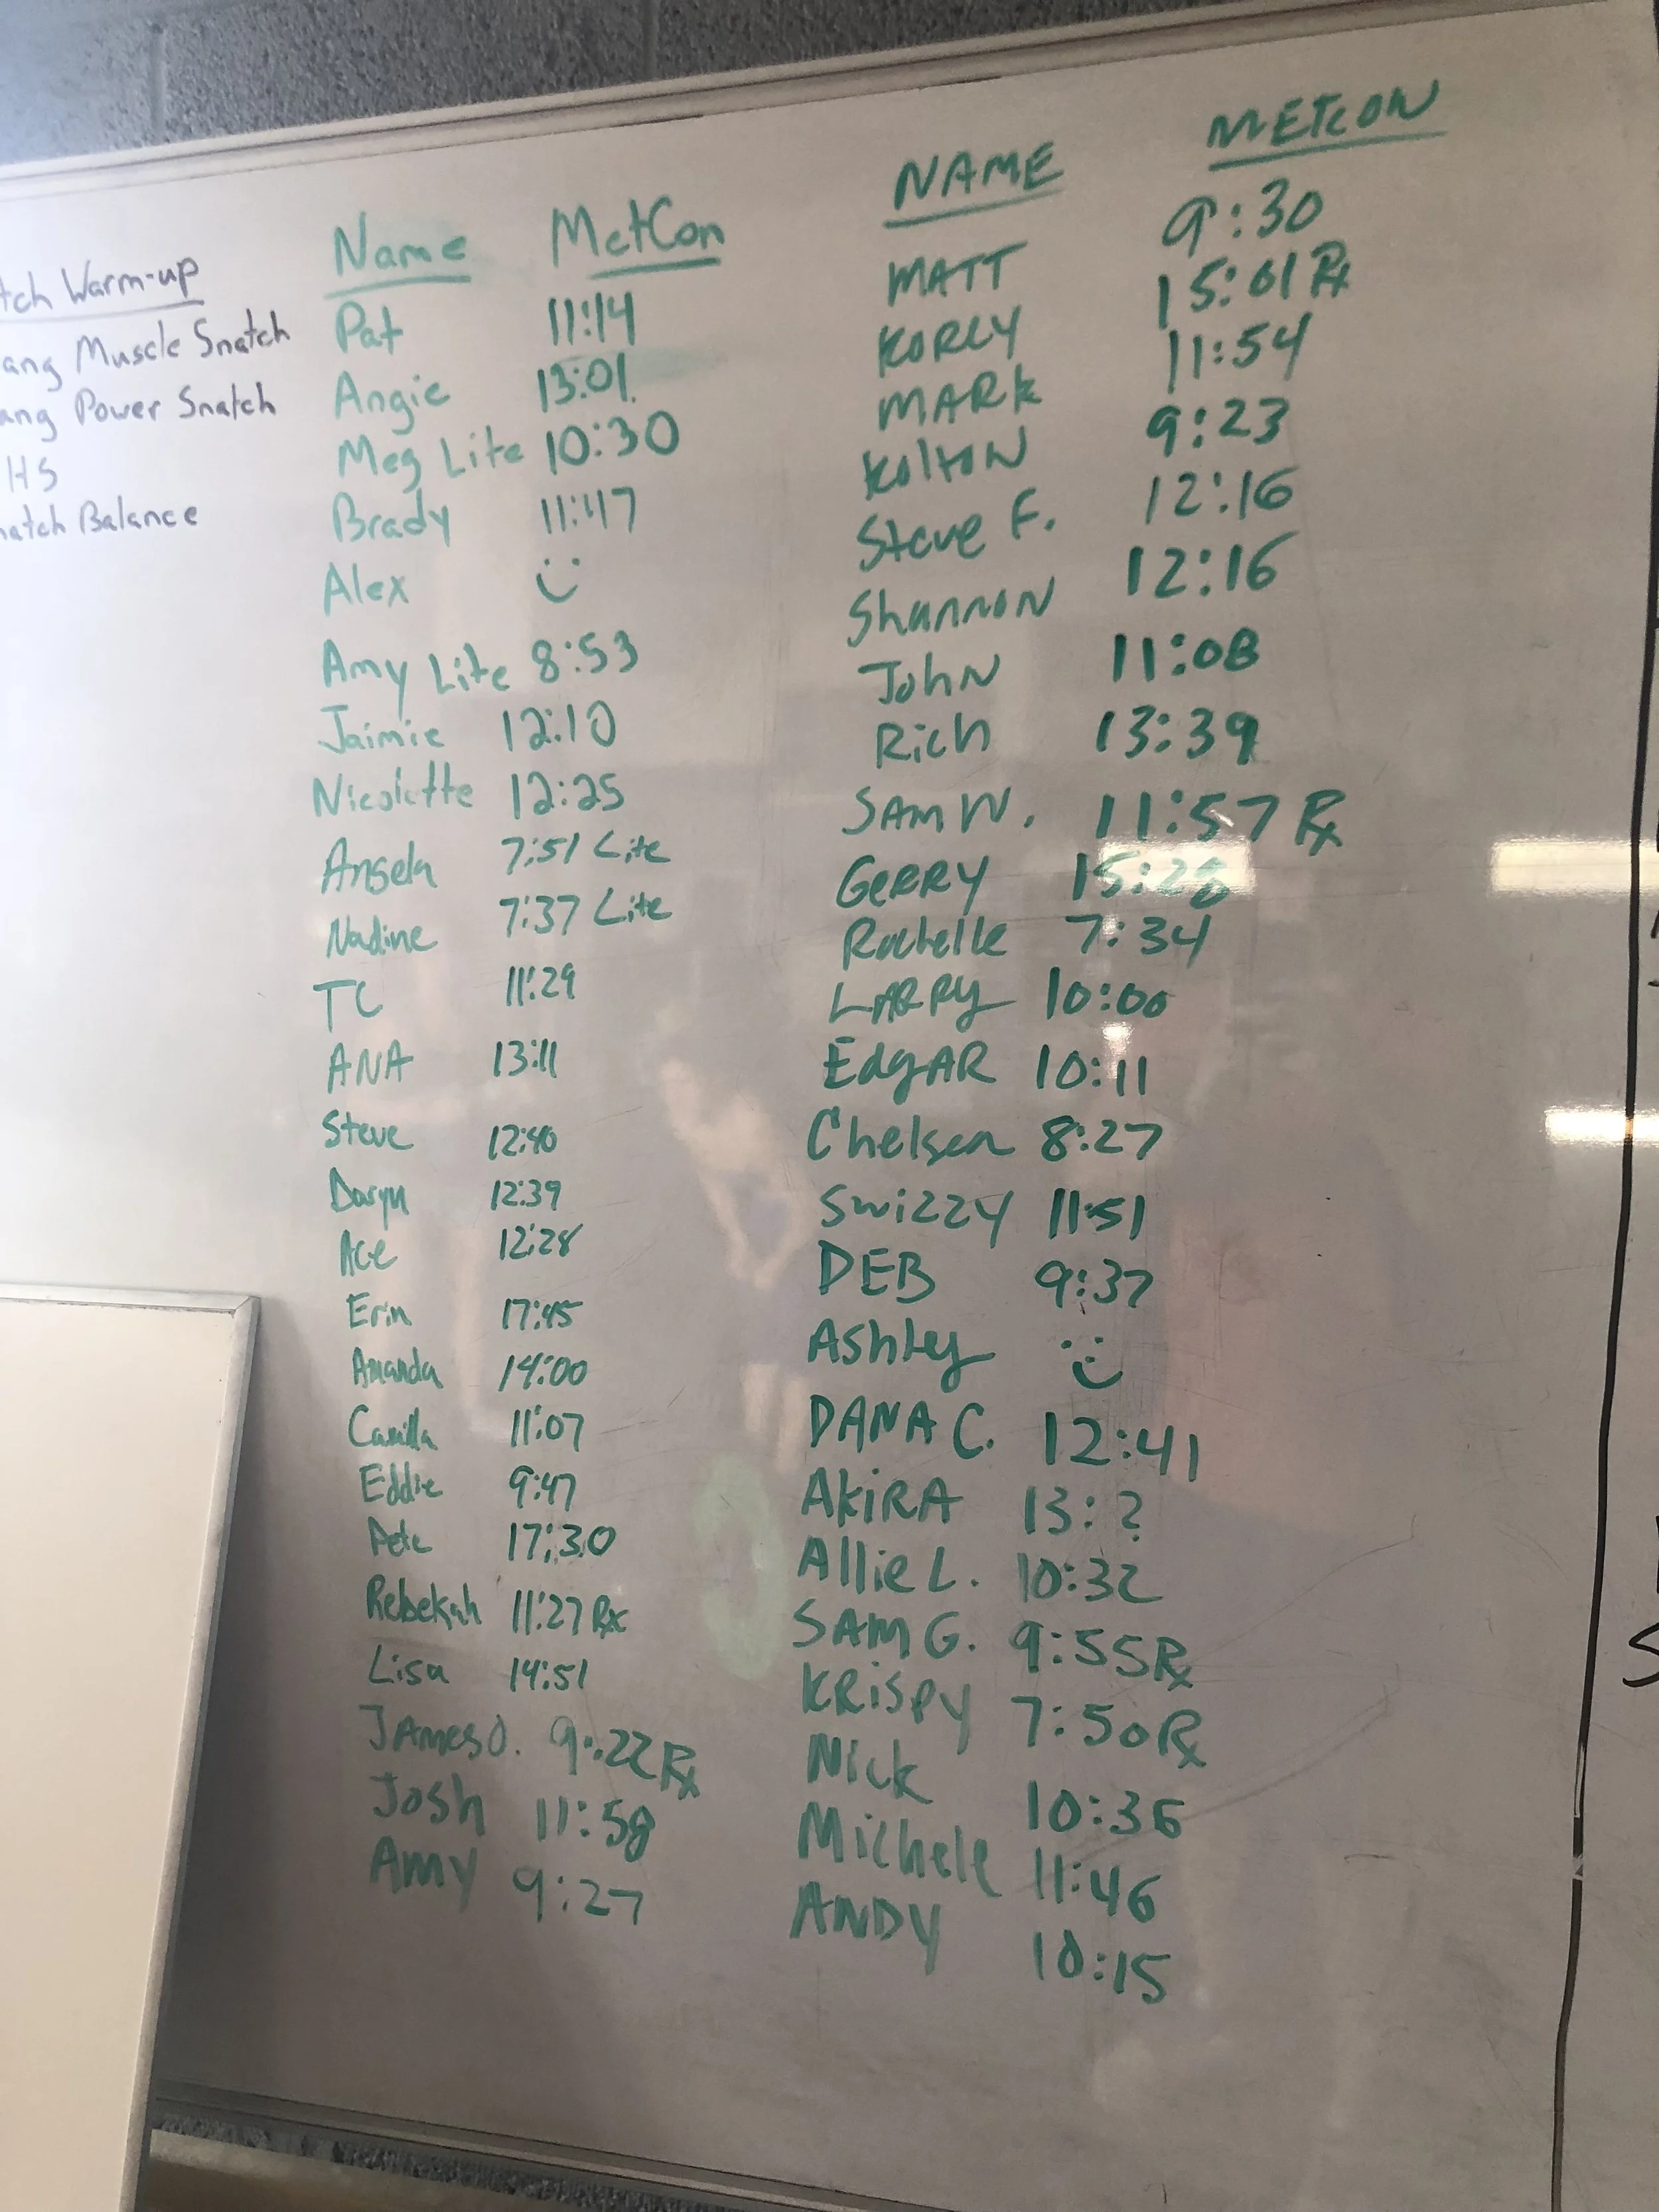 tch Warm-up
ang Muscle Snatch
ang Power Snatch
HS
natch Balance
Name MetCon
Pat 11:14
Angie 13:01
Meg Lite 10:30
Brady 11:47
Alex
Amy Lite 8:53
Jaimie 12:10
Nicolette 12:25
Angela 7:51 Lite
Nadine 7:37 Lite
TC 11:29
ANA 13:11
Steve 12:40
Daryn 12:39
Ace 12:28
Erin 17:45
Amanda 14:00
Camilla 11:07
Eddie 9:47
Pete 17:30
Rebekah 11:27 Rx
Lisa 14:51
JAmes O. 9:22 Rx
Josh 11:58
Amy 9:27
NAME METCON
MATT 9:30
KORLY 15:01 Rx
MARK 11:54
KoltoN 9:23
Steve F. 12:16
ShannoN 12:16
JohN 11:08
Rich 13:39
SAM W. 11:57 Rx
GeRRY 15:28
Rochelle 7:34
LARRY 10:00
EdgAR 10:11
Chelsea 8:27
Swizzy 11:51
DEB 9:37
Ashley
DANA C. 12:41
AkiRA 13:?
Allie L. 10:32
SAM G. 9:55 Rx
KRispy 7:50 Rx
Nick 10:36
Michele 11:46
ANDY 10:15